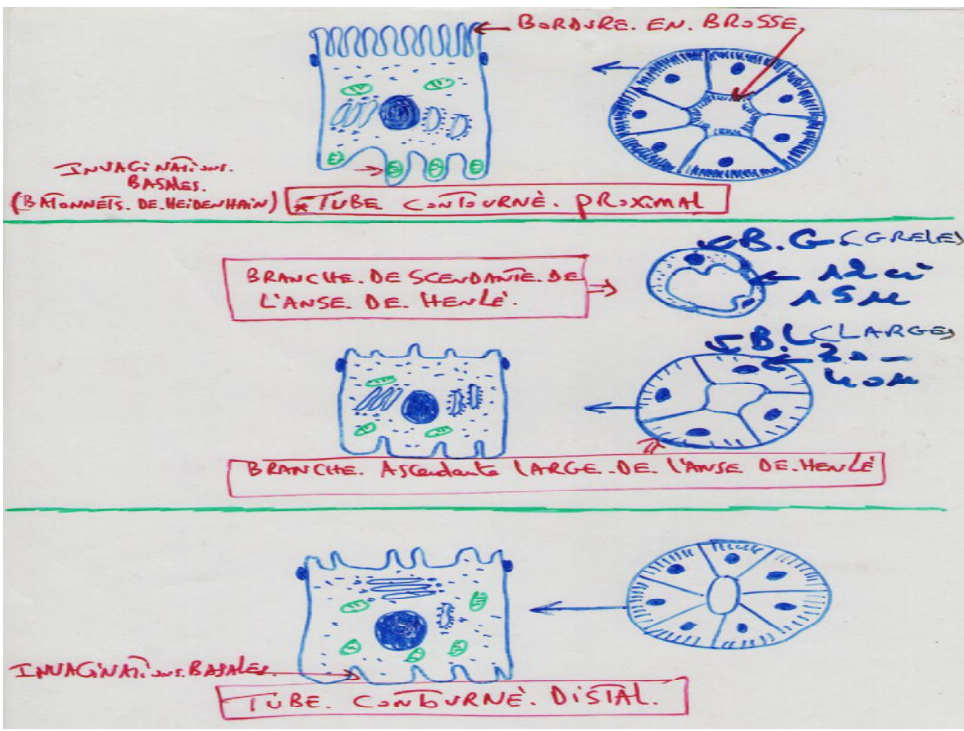 BORDURE. EN. BROSSE
INVAGINATIONS.
BASALES.
(BATONNETS. DE. HEIDENHAIN)
*TUBE CONTOURNÈ. PROXIMAL
BRANCHE. DESCENDANTE. DE
L'ANSE. DE. HENLÉ.
B.G (GRELE)
12 à
15 µ
B.L (LARGE)
20 -
40 µ
BRANCHE. Ascendante LARGE. DE. L'ANSE DE. HENLÉ
INVAGINATIONS. BASALES.
TUBE. CONTOURNÈ. DISTAL.